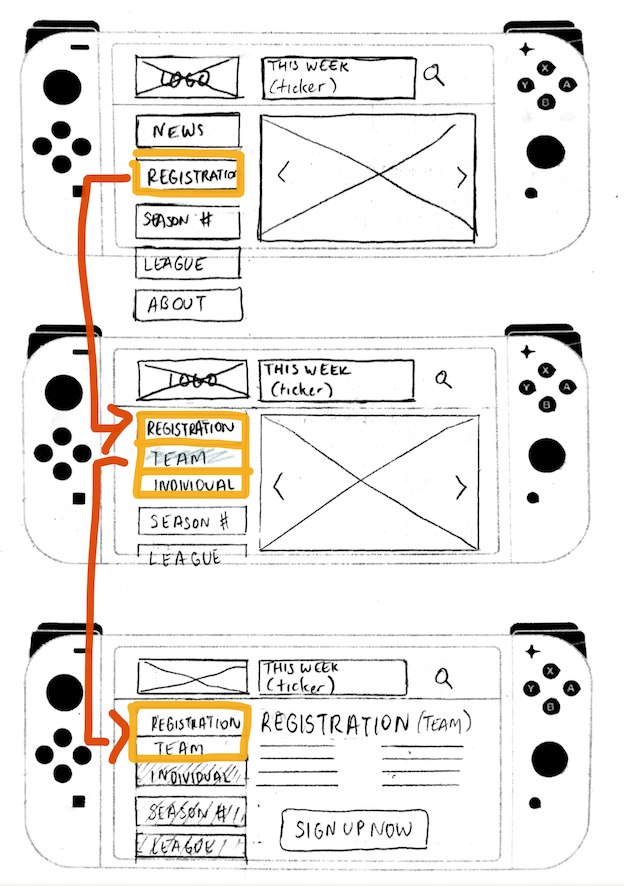 LOGO
THIS WEEK
(ticker)
X
Y
A
B
NEWS
REGISTRATIO
SEASON #
LEAGUE
ABOUT
LOGO
THIS WEEK
(ticker)
X
Y
A
B
REGISTRATION
TEAM
INDIVIDUAL
SEASON #
LEAGUE
THIS WEEK
(ticker)
X
Y
A
B
REGISTRATION
TEAM
INDIVIDUAL
SEASON #
LEAGUE
REGISTRATION (TEAM)
SIGN UP NOW